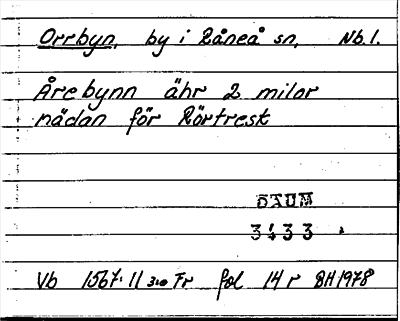 Orrbyn, by i Råneå sn, Nb.l.
Årebynn ähr 2 milor
nädan för Rörtresk
DAUM
3433
Vb 1567:11 3.0 Fr fol 14 r BH 1978